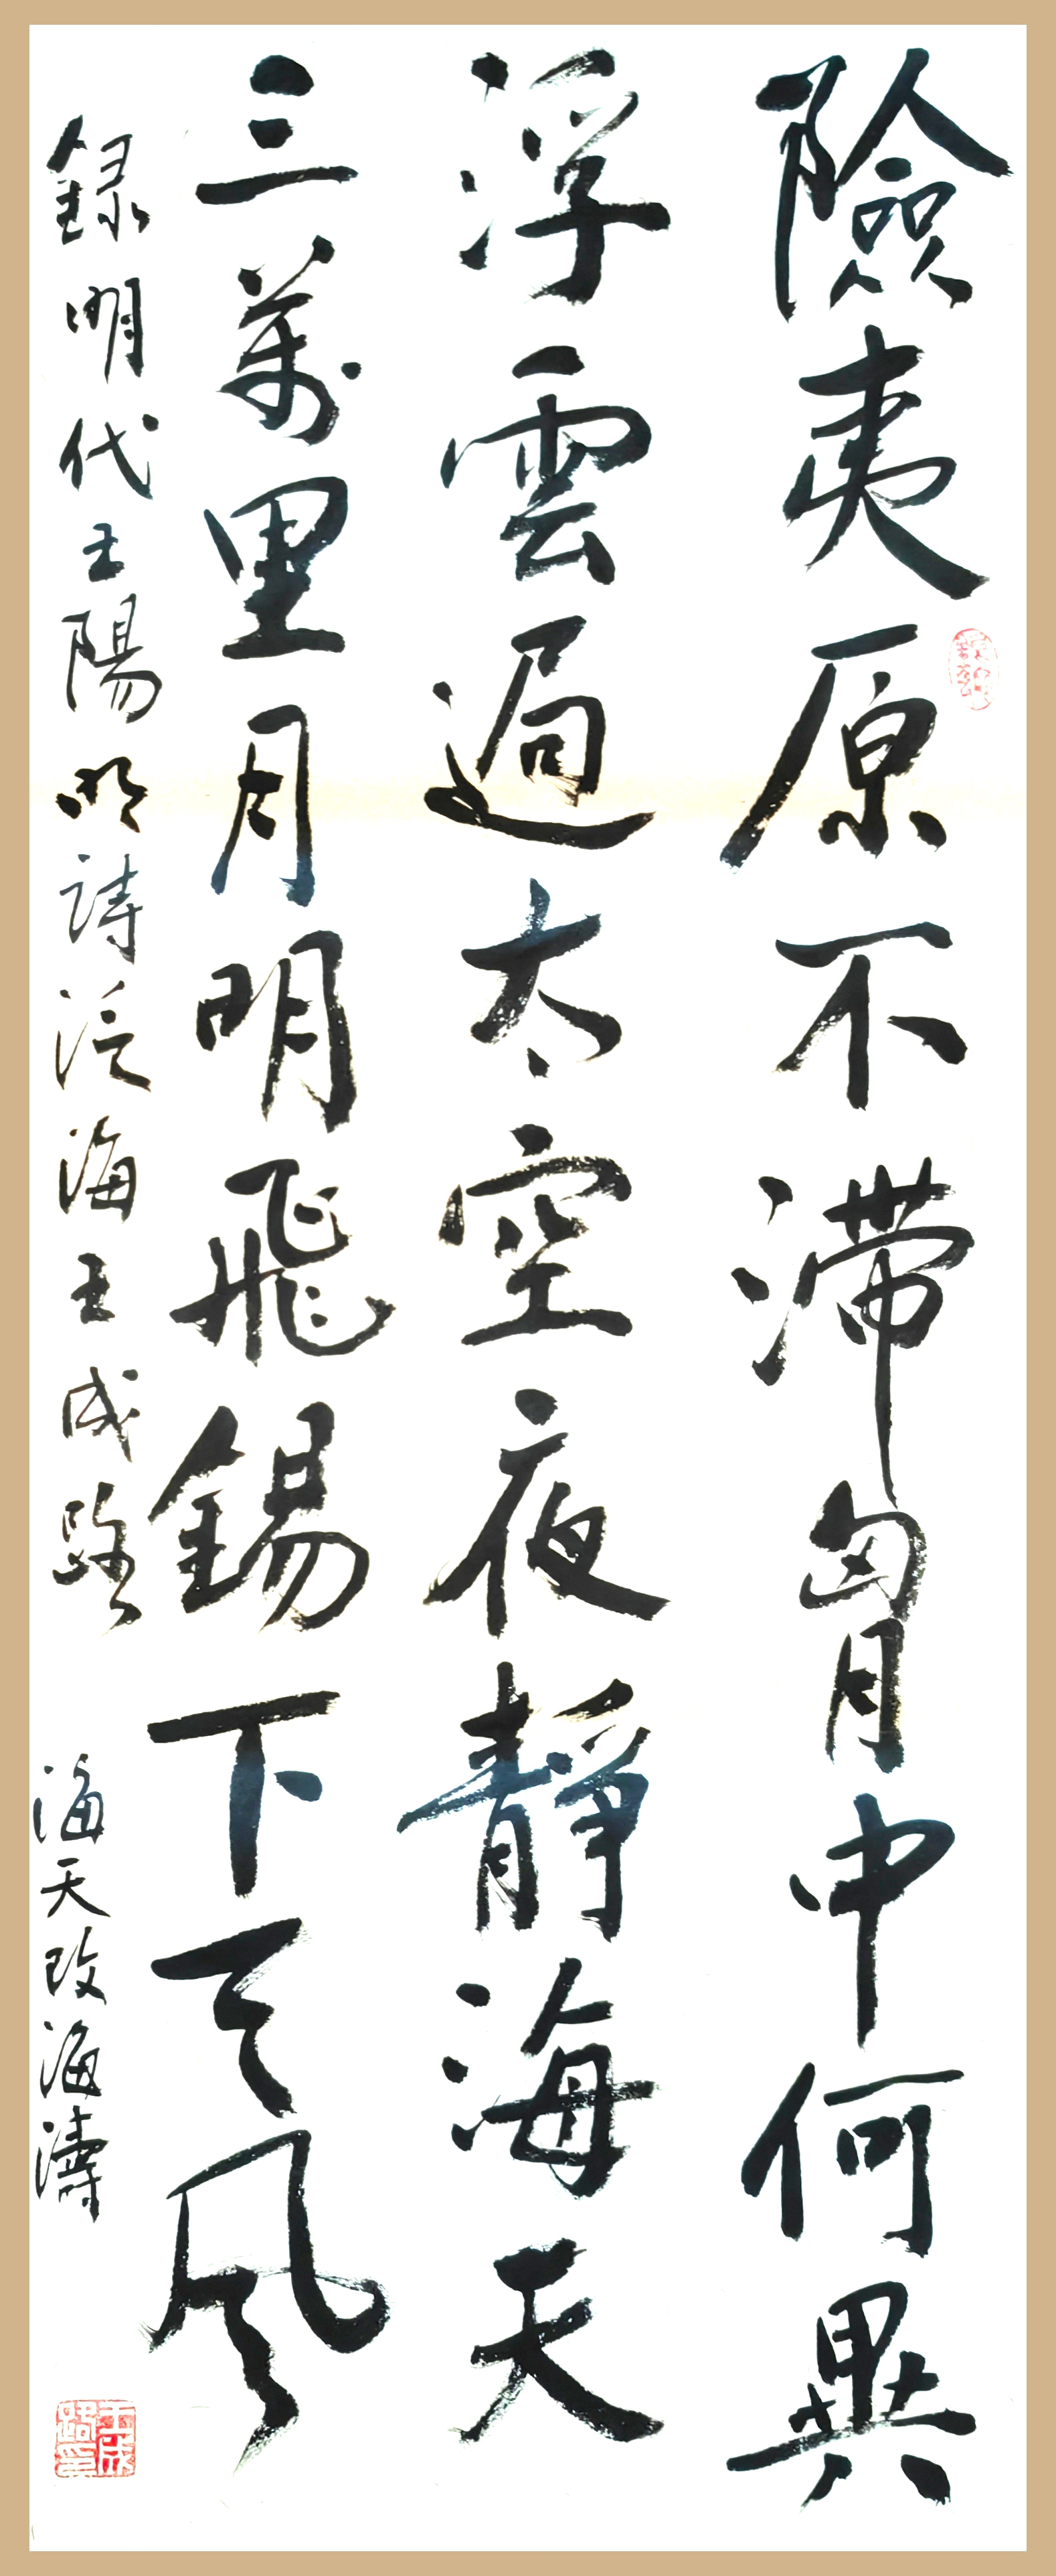 險夷原不滯胷中何異
浮雲過太空夜靜海天
三萬里月明飛錫下天風
録明代王陽明詩泛海王成路
海天改海濤
王成路印